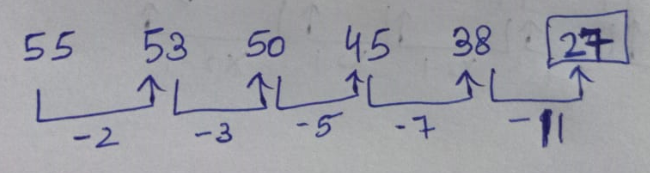 55 53 50 45 38 27
-2 -3 -5 -7 -11